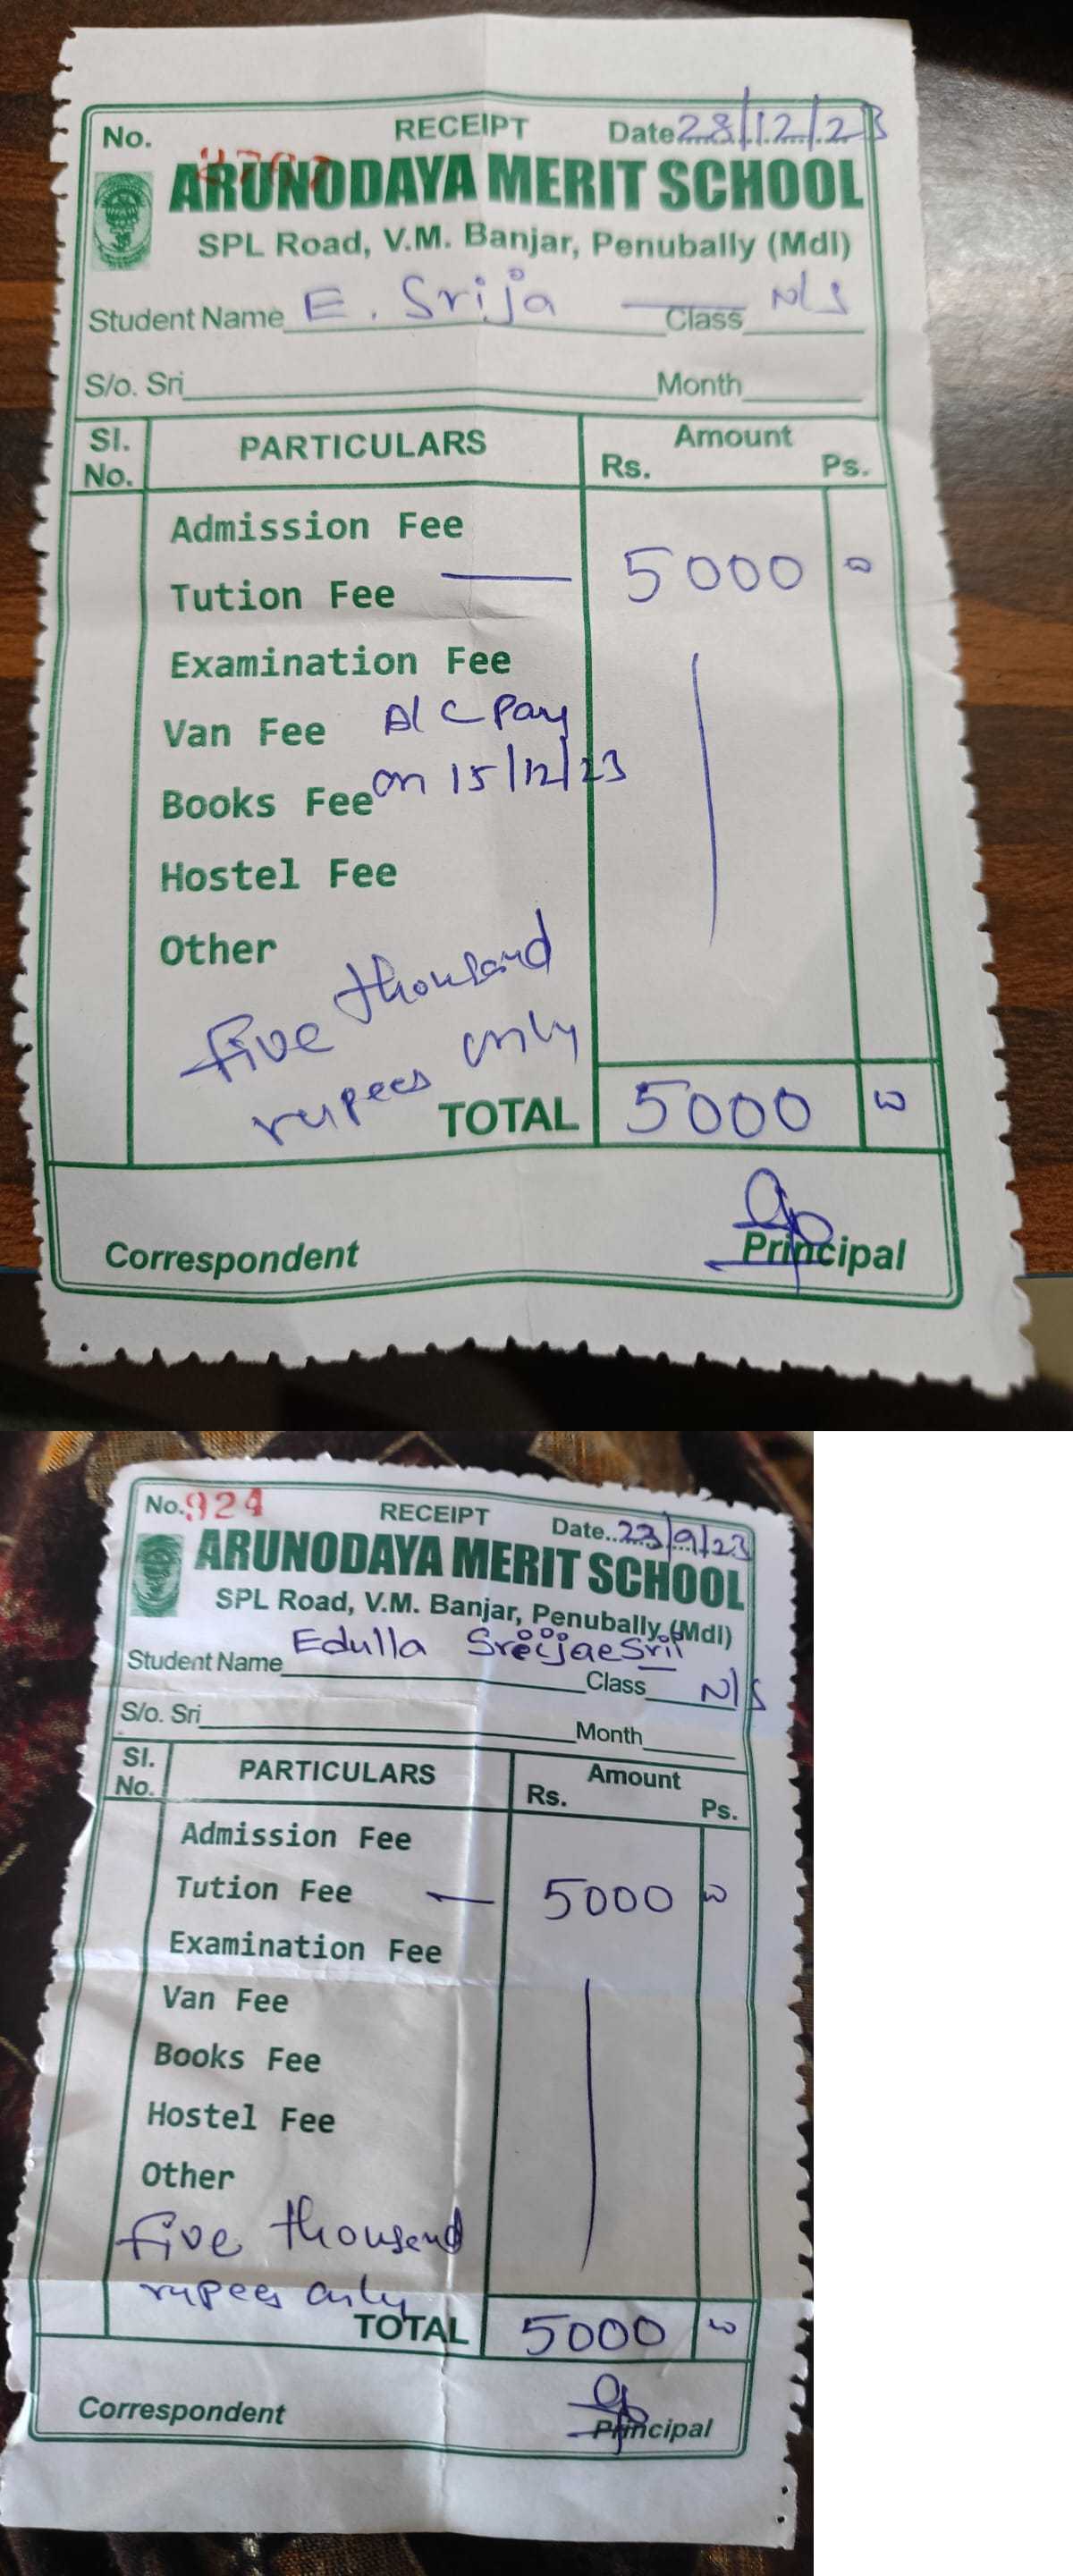 No. RECEIPT Date 28/12/23
ARUNODAYA MERIT SCHOOL
SPL Road, V.M. Banjar, Penubally (Mdl)
Student Name E. Srija Class N/S
S/o. Sri Month
Sl. No. PARTICULARS Amount Rs. Ps.
Admission Fee
Tution Fee 5000
Examination Fee
Van Fee A/C Pay
Books Fee on 15/12/23
Hostel Fee
Other
five thousand
rupees only
TOTAL 5000
Correspondent Principal
No. 924 RECEIPT Date 23/9/23
ARUNODAYA MERIT SCHOOL
SPL Road, V.M. Banjar, Penubally (Mdl)
Student Name Edulla
Class N/S
S/o. Sri Month
Sl. No. PARTICULARS Amount Rs. Ps.
Admission Fee
Tution Fee 5000
Examination Fee
Van Fee
Books Fee
Hostel Fee
Other
five thousand
rupees only
TOTAL 5000
Correspondent Principal